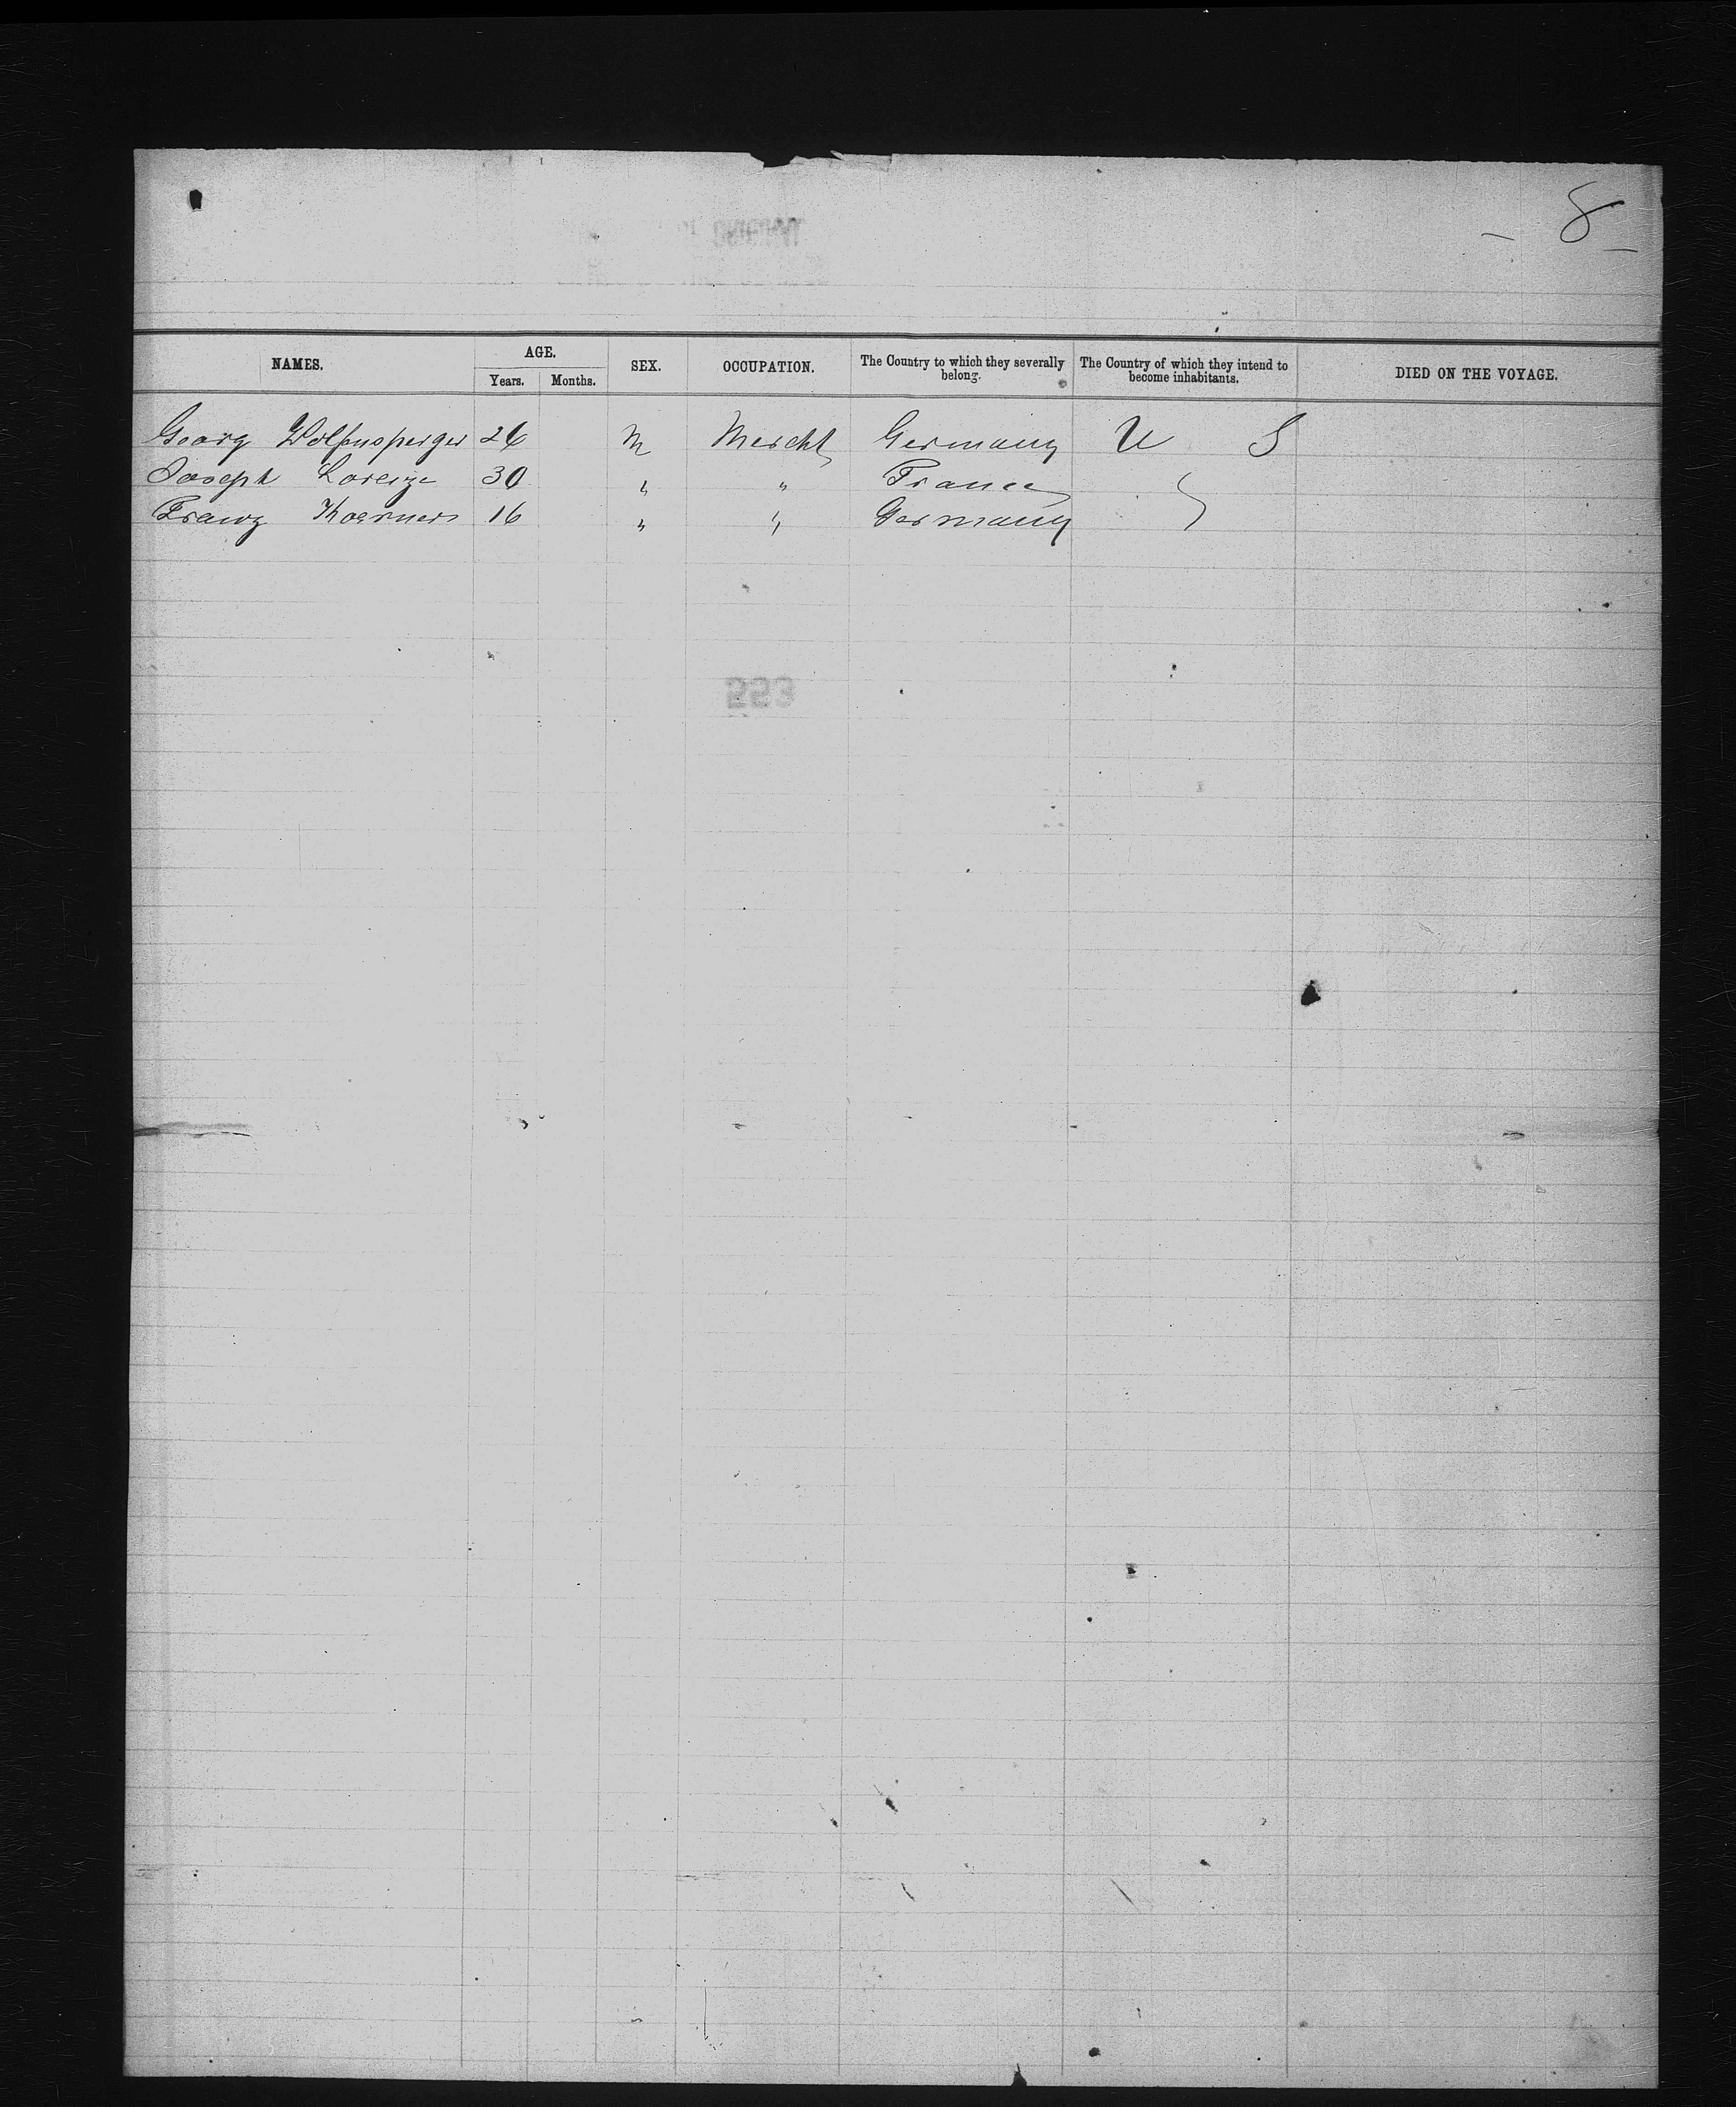 – 8 –
NAMES. AGE. SEX. OCCUPATION. The Country to which they severally belong. The Country of which they intend to become inhabitants. DIED ON THE VOYAGE.
Years. Months.
Georg Wolfensperger 26 M Mercht Germany U S
Joseph Lorenz 30 " " France
Franz Koerner 16 " " Germany
553